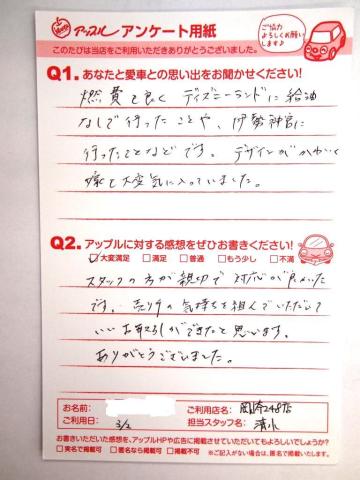 アップル アンケート用紙
このたびは当店をご利用いただきありがとうございました。
ご協力
よろしくお願い
します♪
Q1. あなたと愛車との思い出をお聞かせください!
燃費も良く ディズニーランドに給油
なしで行ったことや、伊勢神宮に
行ったことなどです。デザインがかわいく
嫁も大変気に入っていました。
Q2. アップルに対する感想をぜひお書きください!
大変満足 満足 普通 もう少し 不満
スタッフの方が親切で対応が良かった
です。売り手の気持ちを組んでいただいて
いいお取引ができたと思います。
ありがとうございました。
お名前:
ご利用店名: 岡崎248店
ご利用日: 3/2
担当スタッフ名: 清水
お書きいただいた感想を、アップルHPや広告に掲載させていただいてもよろしいでしょうか?
実名で掲載可 匿名なら掲載可 掲載不可 ※ご記入がない場合は、匿名で掲載いたします。